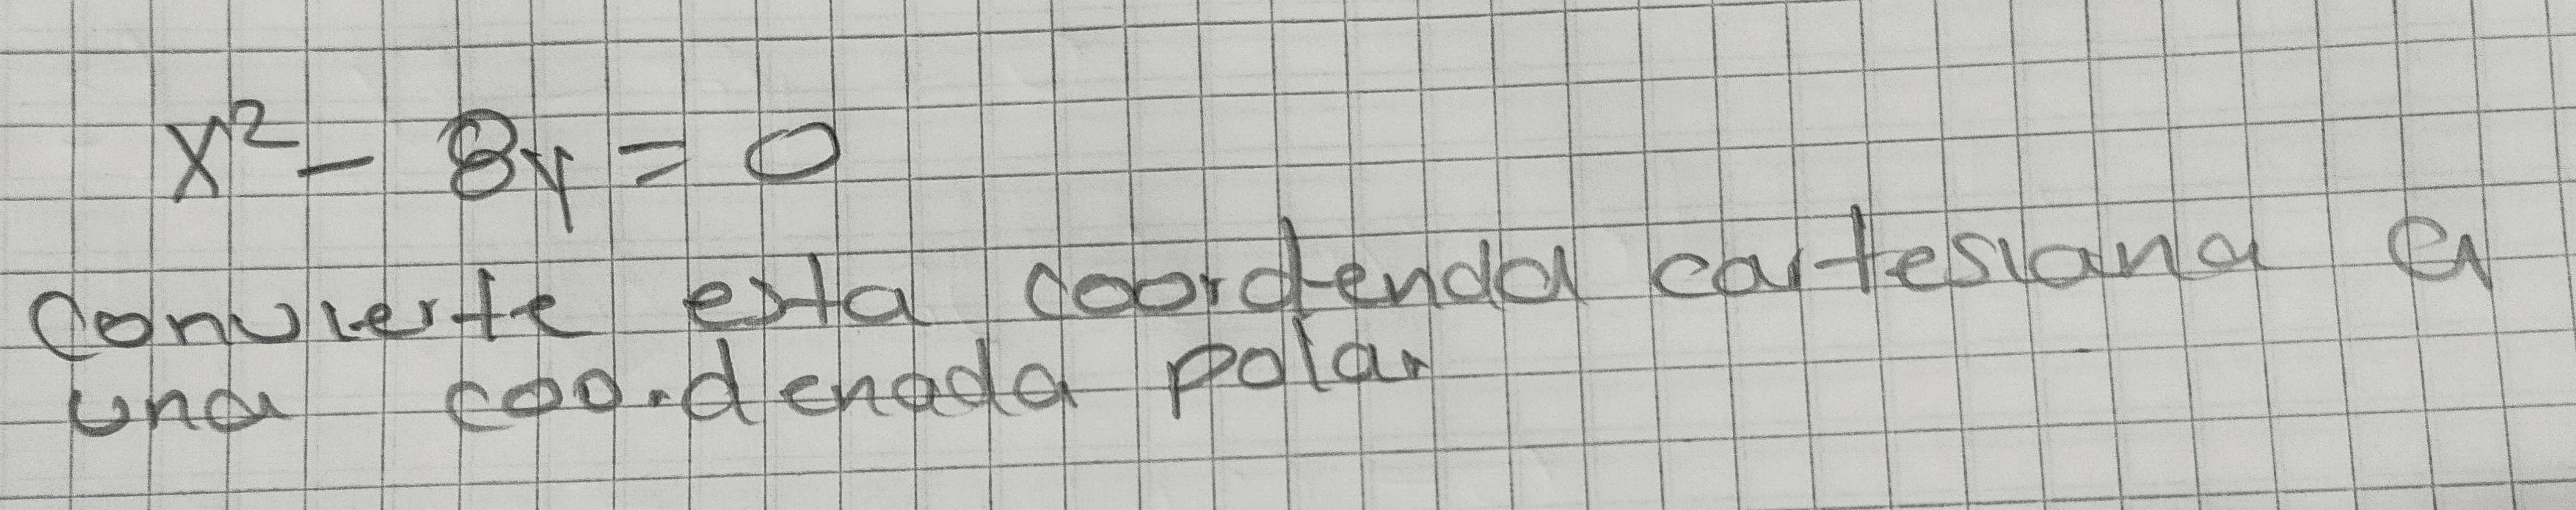 x² - 8y = 0
convierte esta coordenda cartesiana a
una coordenada polar